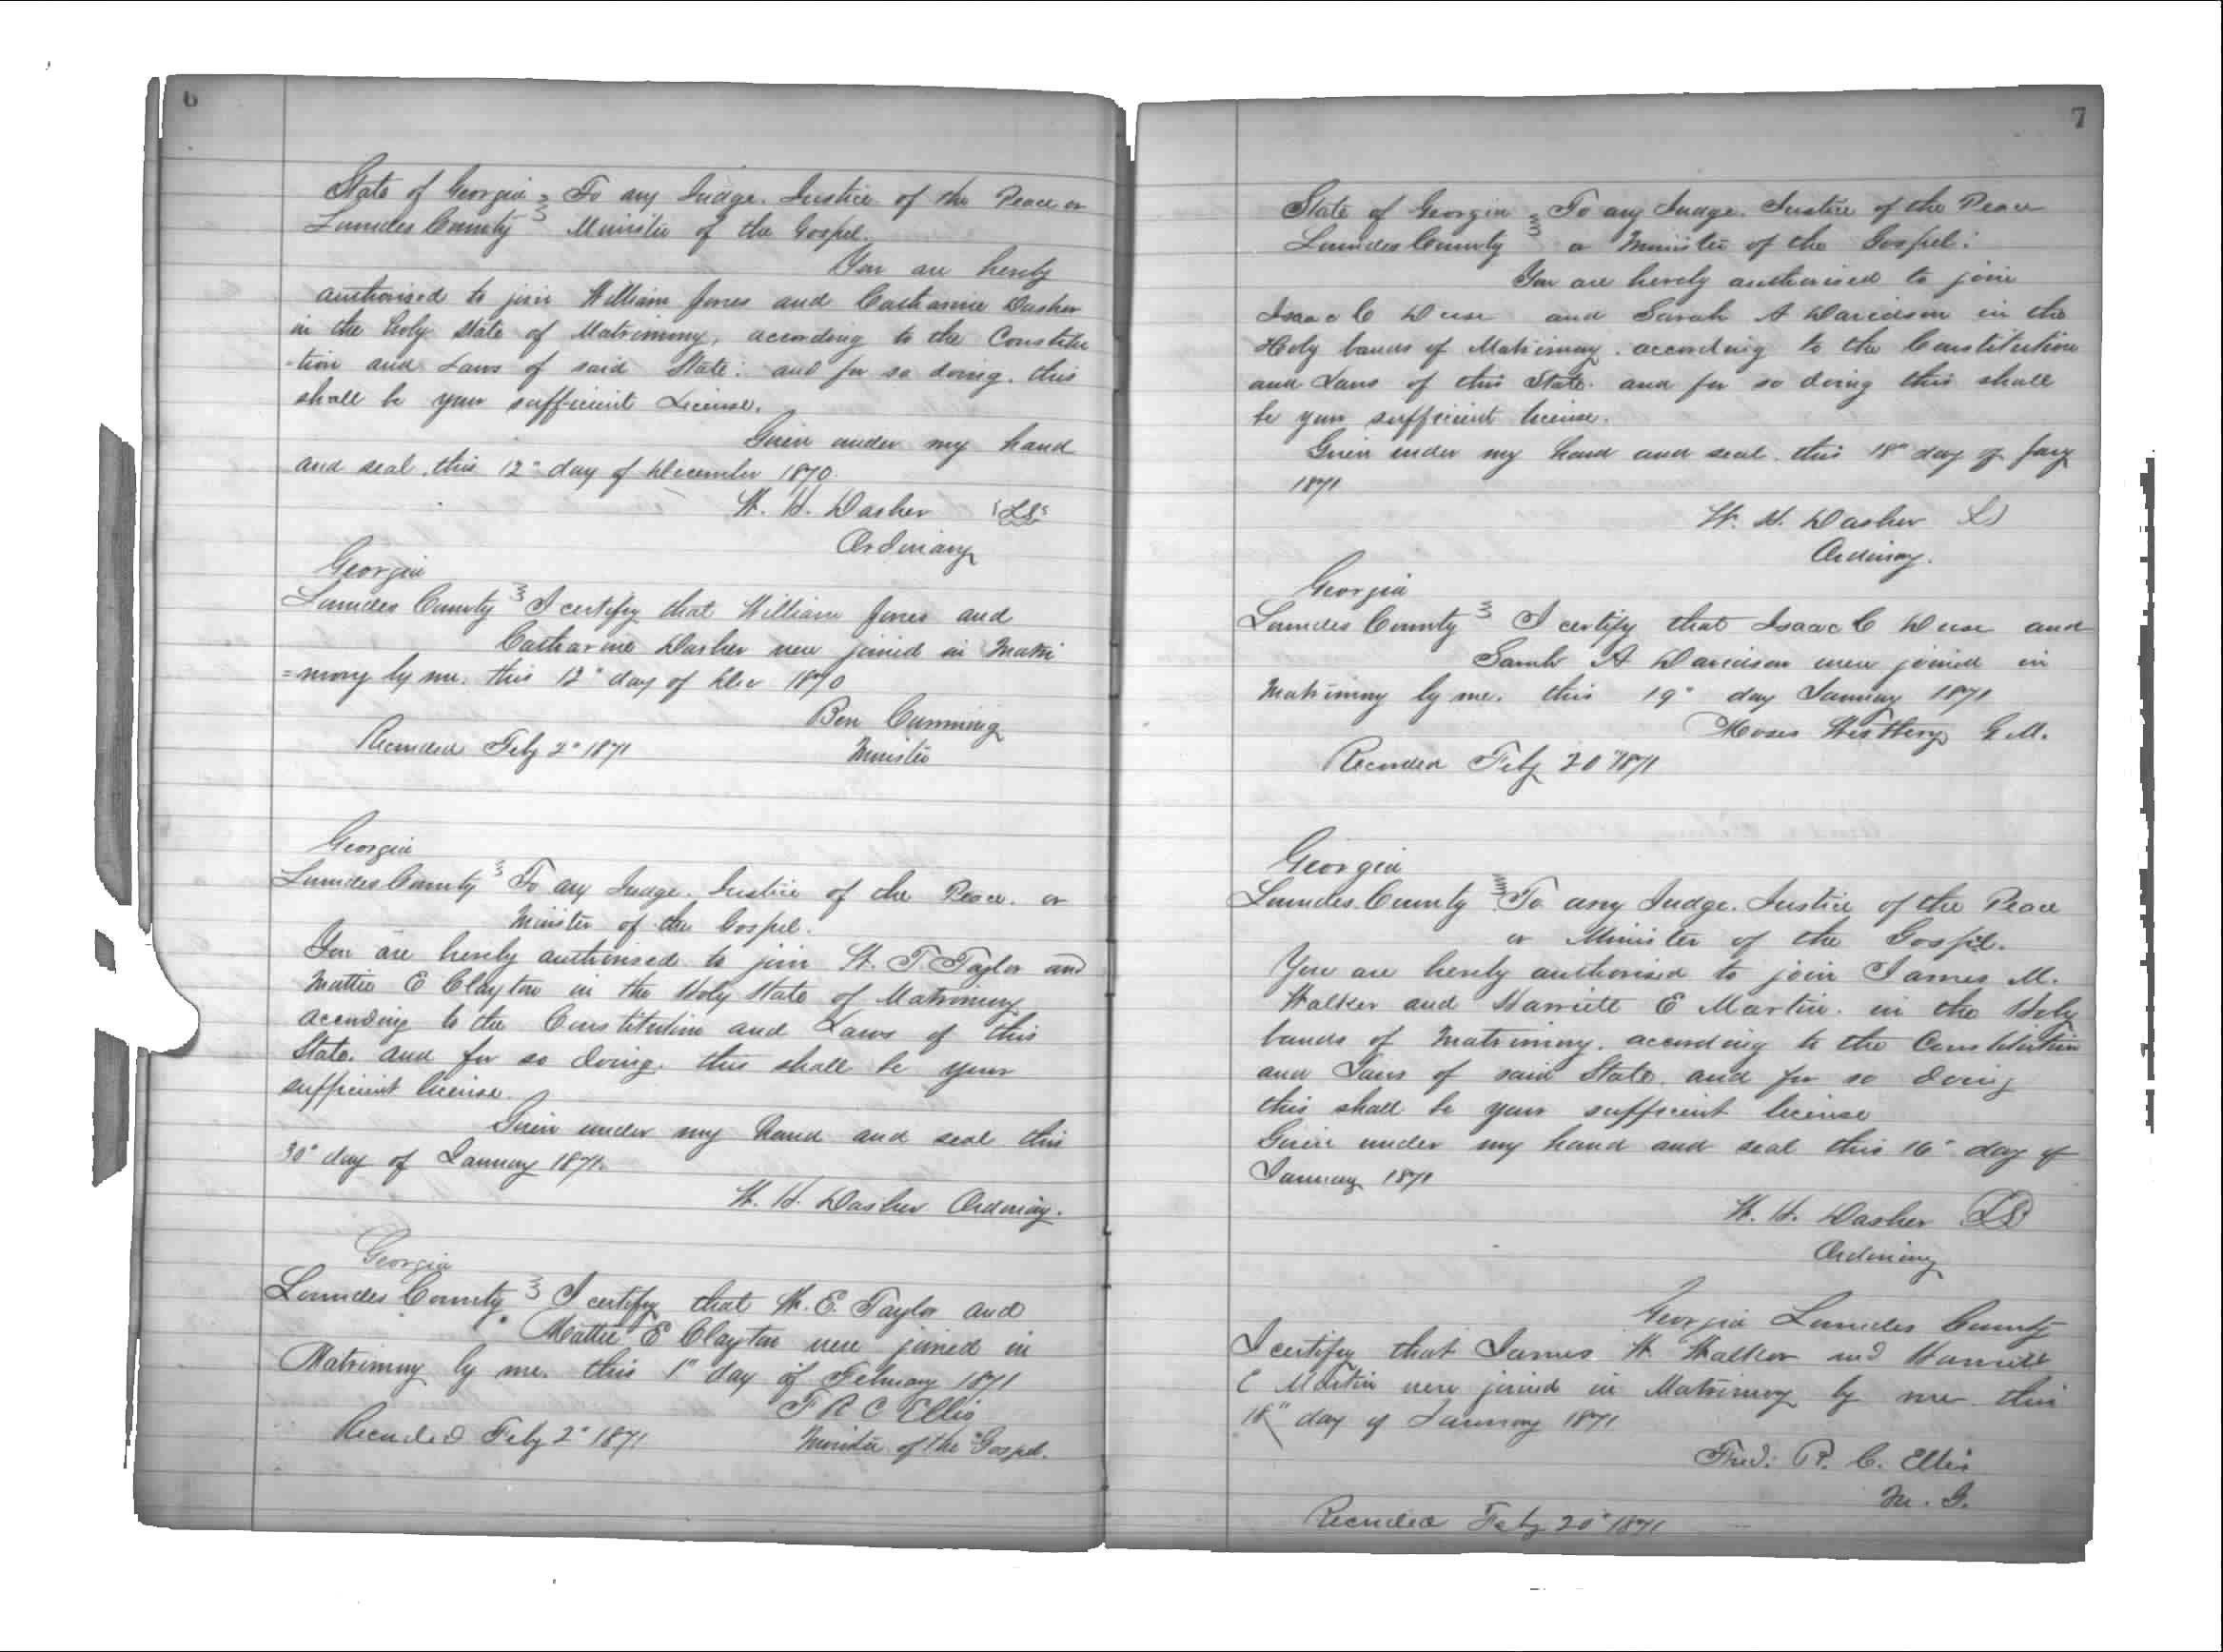 6
State of Georgia } To any Judge. Justice of the Peace or
Lowndes County } Minister of the Gospel.
You are hereby
authorised to join William Jones and Catharine Dasher
in the holy state of Matrimony, according to the Constitu
-tion and Laws of said State: and for so doing. this
shall be your sufficient License.
Given under my hand
and seal, this 12" day of December 1870.
W. H. Dasher (LS)
Ordinary
Georgia
Lowndes County } I certify that William Jones and
Catharine Dasher were joined in Matri
=mony by me. this 12" day of Dec 1870
Ben Cumming
Recorded Feby 2" 1871
Minister
Georgia
Lowndes County } To any Judge. Justice of the Peace. or
Minister of the Gospel.
You are hereby authorised to join W. T. Taylor and
Mattie E Clayton in the Holy State of Matrimony
according to the Constitution and Laws of this
State. and for so doing. this shall be your
sufficient license.
Given under my hand and seal this
30" day of January 1871.
W. H. Dasher Ordinary.
Georgia
Lowndes County } I certify that W. E. Taylor and
Mattie E Clayton were joined in
Matrimony by me. this 1" day of February 1871
F R C Ellis
Recorded Feby 2" 1871 Minister of the Gospel.
7
State of Georgia } To any Judge. Justice of the Peace
Lowndes County } or Minister of the Gospel:
You are hereby authorised to join
Isaac C and Sarah A Davidson in the
Holy bands of Matrimony. according to the Constitution
and Laws of this State. and for so doing this shall
be your sufficient license.
Given under my hand and seal. this 18" day of Jany
1871
W. H. Dasher LS
Ordinary.
Georgia
Lowndes County } I certify that Isaac C and
Sarah A Davidson were joined in
Matrimony by me. this 19" day January 1871
Moses
Recorded Feby 20" 1871
Georgia
Lowndes County } To any Judge. Justice of the Peace
or Minister of the Gospel.
You are hereby authorised to join James M.
Walker and Harriett E Martin. in the Holy
bands of Matrimony. according to the Constitution
and Laws of said State. and for so doing
this shall be your sufficient license
Given under my hand and seal this 16" day of
January 1871
W. H. Dasher LS
Ordinary
Georgia Lowndes County
I certify that James W Walker and Harriett
E Martin were joined in Matrimony by me this
18" day of January 1871
Fred. R. C. Ellis
M. G.
Recorded Feby 20" 1871